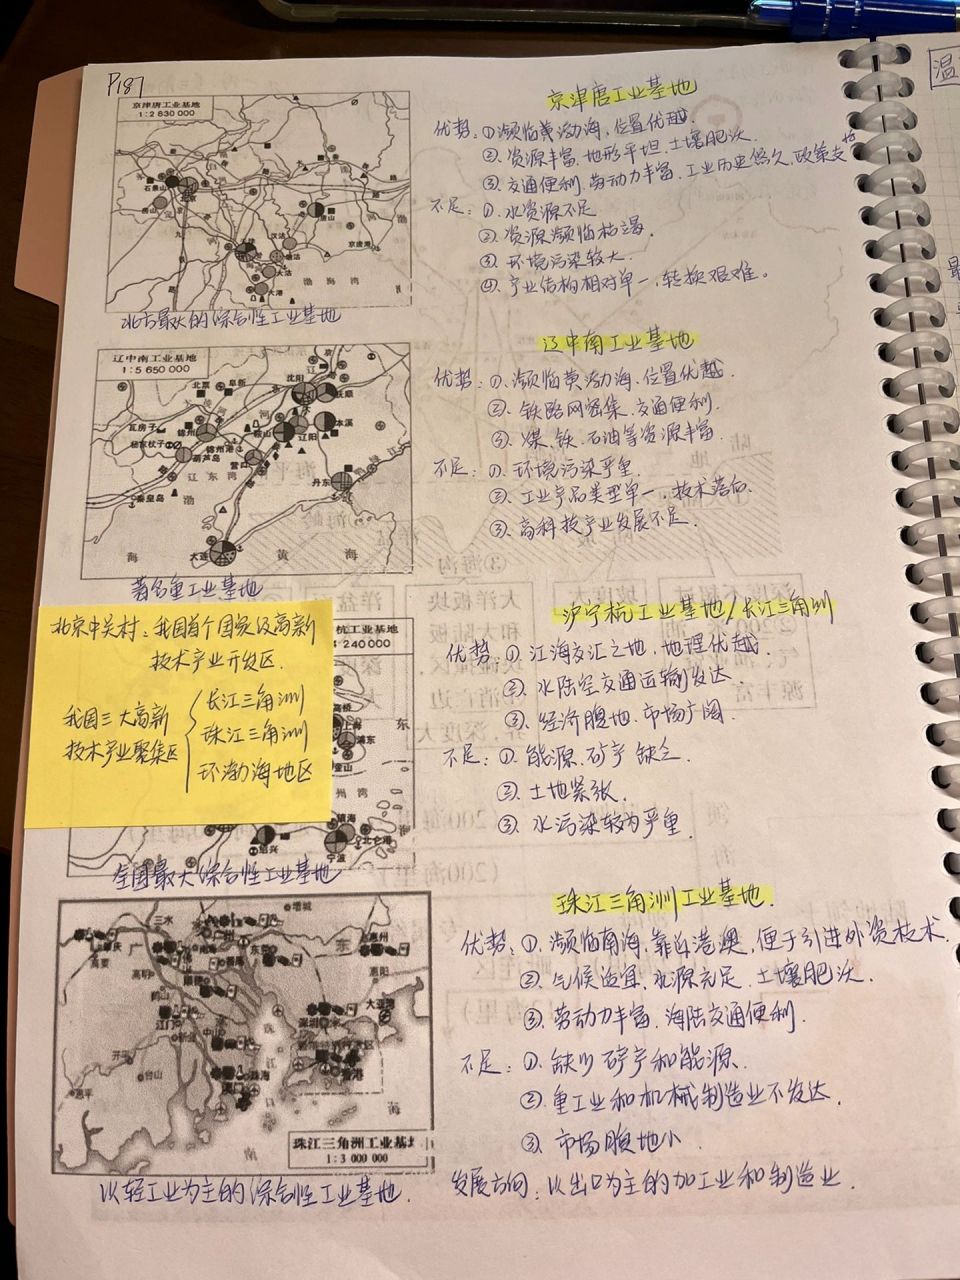 P187
京津唐工业基地
1:2 830 000
石景山
北京
房山
唐山
汉沽
塘沽
大沽
大港
京唐港
渤海湾
北方最大的综合性工业基地
京津唐工业基地
优势:①濒临黄渤海,位置优越.
②.资源丰富.地形平坦.土壤肥沃.
③.交通便利.劳动力丰富.工业历史悠久.政策支持
不足:①.水资源不足
②.资源濒临枯竭.
③.环境污染较大.
④.产业结构相对单一,转换艰难。
辽中南工业基地
1:5 650 000
沈阳
抚顺
北票
阜新
本溪
瓦房子
锦州
鞍山
辽阳
杨家杖子
锦州港
葫芦岛
营口
辽东湾
丹东
秦皇岛
渤
大连
海 黄 海
著名重工业基地
辽中南工业基地
优势:①.濒临黄渤海,位置优越.
②.铁路网密集.交通便利.
③.煤、铁、石油等资源丰富.
不足:①.环境污染严重.
②.工业产品类型单一,技术落后.
③.高科技产业发展不足.
北京中关村:我国首个国家级高新
技术产业开发区.
我国三大高新
技术产业聚集区
长江三角洲
珠江三角洲
环渤海地区
杭工业基地
240 000
高桥
上海
浦东
金山
东
州湾
镇海
绍兴
北仑港
宁波
全国最大综合性工业基地
沪宁杭工业基地/长江三角洲
优势:①.江海交汇之地,地理优越.
②.水陆空交通运输发达.
③.经济腹地.市场广阔.
不足:①.能源.矿产缺乏.
②.土地紧张.
③.水污染较为严重.
三水
广州
增城
肇庆
东莞
惠州
高要
高明
顺德
惠阳
鹤山
江门
中山
深圳
大亚湾
开平
台山
恩平
珠海
澳门
香港
珠
江
口
南
海
珠江三角洲工业基地
1:3 000 000
以轻工业为主的综合性工业基地.
珠江三角洲工业基地.
优势:①.濒临南海.靠近港澳,便于引进外资技术.
②.气候适宜.水源充足.土壤肥沃.
③.劳动力丰富.海陆交通便利.
不足:①.缺少矿产和能源.
②.重工业和机械制造业不发达.
③.市场腹地小.
发展方向:以出口为主的加工业和制造业.
温